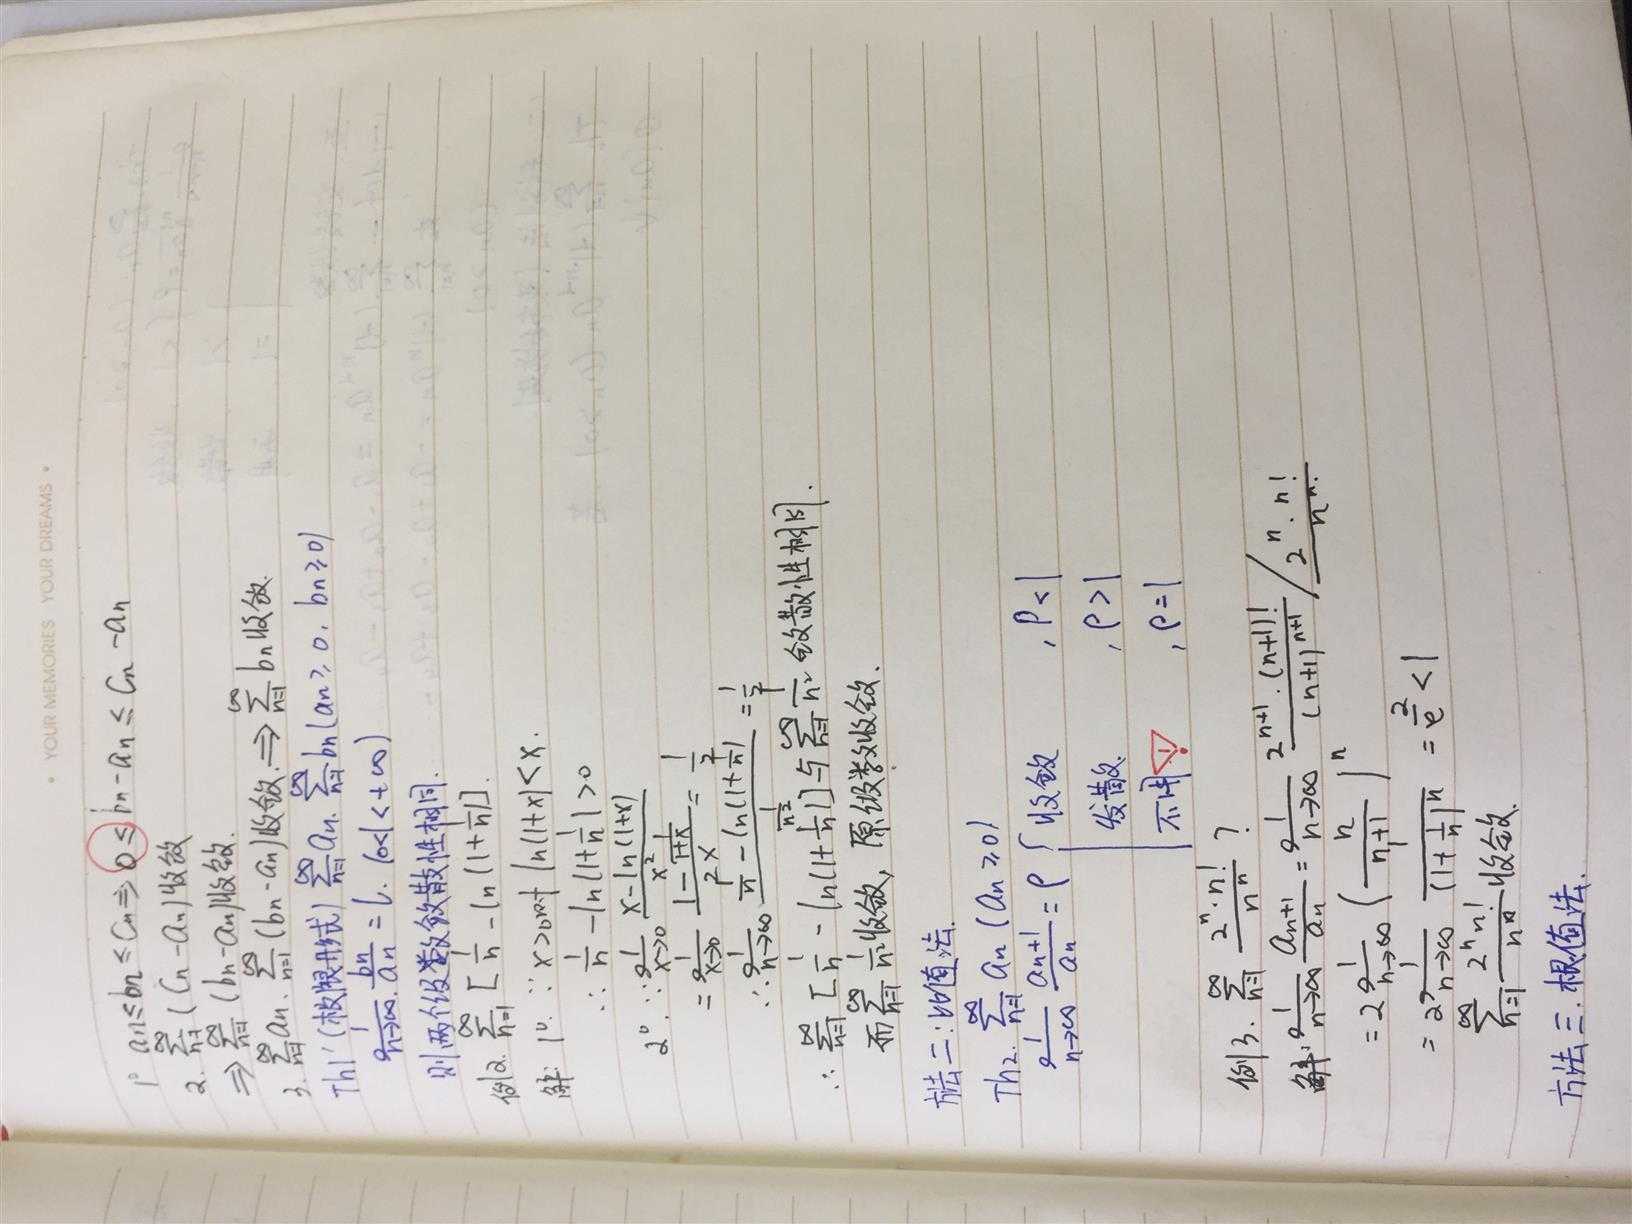 • YOUR MEMORIES YOUR DREAMS •
1° an≤bn≤Cn⇒0≤bn-an≤Cn-an
2. ∑_{n=1}^{∞}(Cn-an)收敛
⇒∑_{n=1}^{∞}(bn-an)收敛.
3. ∑_{n=1}^{∞}an. ∑_{n=1}^{∞}(bn-an)收敛.⇒∑_{n=1}^{∞}bn收敛.
Th1'(极限形式) ∑_{n=1}^{∞}an. ∑_{n=1}^{∞}bn(an≥0. bn≥0)
lim_{n→∞} bn/an = l. (0<l<+∞)
则两个级数敛散性相同.
例2. ∑_{n=1}^{∞}[1/n-ln(1+1/n)].
解: 1°. ∵x>0时 ln(1+x)<x.
∴ 1/n-ln(1+1/n)>0
2°. ∵lim_{x→0} (x-ln(1+x))/x²
=lim_{x→0} (1-1/(1+x))/2x=1/2
∴lim_{n→∞} (1/n-ln(1+1/n))/(1/n²)=1/2
∴ ∑_{n=1}^{∞}[1/n-ln(1+1/n)]与∑_{n=1}^{∞}1/n² 敛散性相同.
而∑_{n=1}^{∞}1/n²收敛, 原级数收敛.
方法二:比值法.
Th2. ∑_{n=1}^{∞}an (an≥0)
lim_{n→∞} an+1/an=ρ { 收敛 , ρ<1
发散. , ρ>1
不用 ! , ρ=1
例3. ∑_{n=1}^{∞} 2ⁿ·n!/nⁿ ?
解: lim_{n→∞} an+1/an = lim_{n→∞} 2^{n+1}·(n+1)!/(n+1)^{n+1} / 2ⁿ·n!/nⁿ.
=2lim_{n→∞}(n/(n+1))ⁿ
=2lim_{n→∞} 1/(1+1/n)ⁿ =2/e<1
∑_{n=1}^{∞} 2ⁿn!/nⁿ收敛.
方法三.根值法.